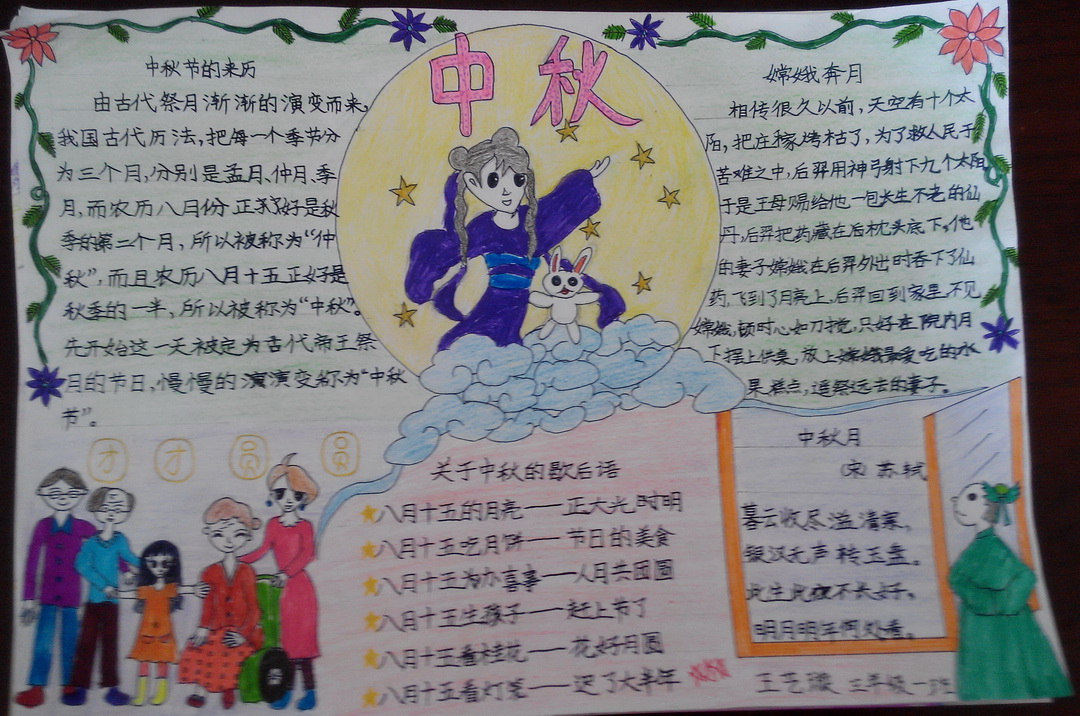 中秋
中秋节的来历
由古代祭月渐渐的演变而来,
我国古代历法,把每一个季节分
为三个月,分别是孟月、仲月、季
月,而农历八月份正好是秋
季的第二个月,所以被称为“仲
秋”,而且农历八月十五正好是
秋季的一半,所以被称为“中秋”。
先开始这一天被定为古代帝王祭
月的节日、慢慢的演演变称为“中秋
节”。
嫦娥奔月
相传很久以前,天空有十个太
阳,把庄稼烤枯了,为了救人民于
苦难之中,后羿用神弓射下九个太阳
于是王母赐给他一包长生不老的仙
丹,后羿把药藏在后枕头底下。他
的妻子嫦娥在后羿外出时吞下了仙
药,飞到了月亮上,后羿回到家里,不见
嫦娥,顿时心如刀搅,只好在院内月
下摆上供桌,放上嫦娥最爱吃的水
果糕点,遥祭远去的妻子。
才才圆圆
关于中秋的歇后语
八月十五的月亮——正大光明时明
八月十五吃月饼——节日的美食
八月十五为办喜事——人月共团圆
八月十五生孩子——赶上节了
八月十五看桂花——花好月圆
八月十五看灯笼——迟了大半年
中秋月
(宋)苏轼
暮云收尽溢清寒,
银汉无声转玉盘。
此生此夜不长好,
明月明年何处看。
王艺璇 三年级一班